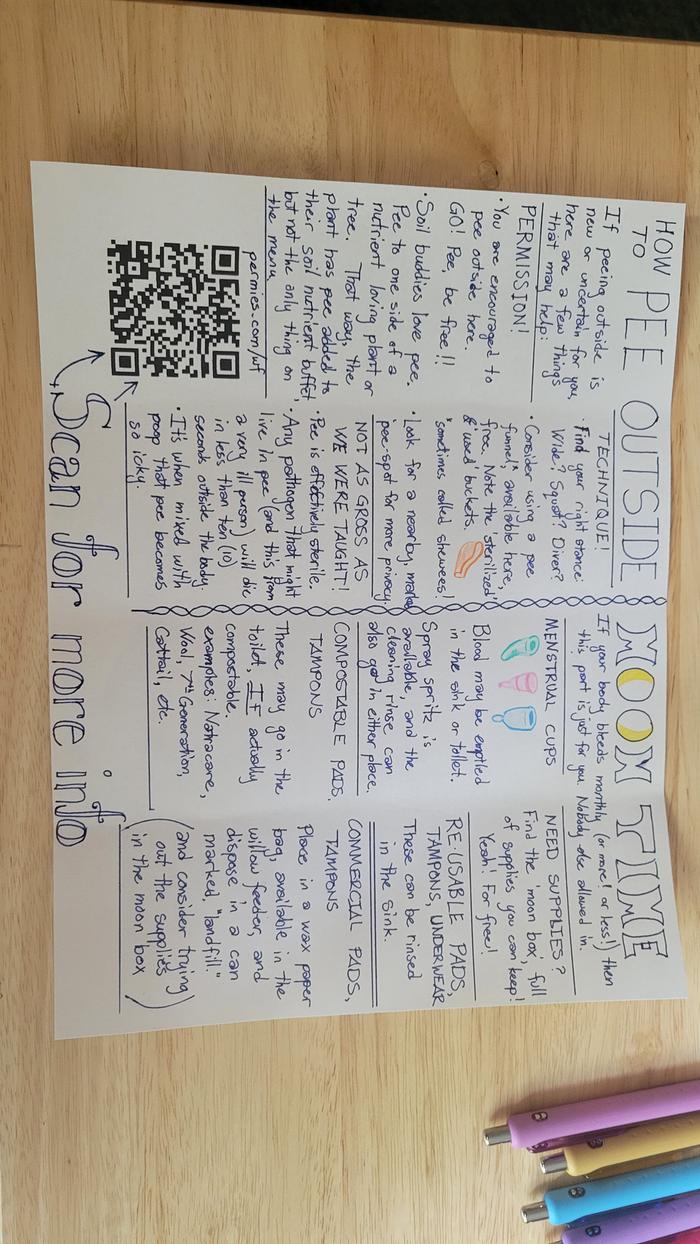 HOW TO PEE OUTSIDE
If peeing outside is
new or uncertain for you,
here are a few things
that may help:
PERMISSION!
• You are encouraged to
pee outside here.
GO! Pee, be free!!
• Soil buddies love pee.
Pee to one side of a
nutrient loving plant or
tree. That way, the
plant has pee added to
their soil nutrient buffet,
but not the only thing on
the menu
permies.com/wf
TECHNIQUE!
• Find your right stance:
Wide? Squat? Diver?
• Consider using a pee
funnel*, available here,
free. Note the "sterilized"
& "used" buckets.
*sometimes called shewees!
• Look for a nearby, marked
pee-spot for more privacy.
NOT AS GROSS AS
WE WERE TAUGHT!
• Pee is effectively sterile.
• Any pathogen that might
live in pee (and this from
a very ill person) will die
in less than ten (10)
seconds outside the body
• It's when mixed with
poop that pee becomes
so icky.
MOON TIME
If your body bleeds monthly (or more! or less!) then
this part is just for you. Nobody else allowed in.
MENSTRUAL CUPS
Blood may be emptied
in the sink or toilet.
Spray spritz is
available, and the
cleaning rinse can
also go in either place.
COMPOSTABLE PADS,
TAMPONS
These may go in the
toilet, IF actually
compostable.
examples: Natracare,
Wool, 7th Generation,
Cattail, etc.
NEED SUPPLIES?
Find the 'moon box', full
of supplies you can keep!
Yeah! For free!
RE-USABLE PADS,
TAMPONS, UNDERWEAR
These can be rinsed
in the sink.
COMMERCIAL PADS,
TAMPONS
Place in a wax paper
bag, available in the
willow feeder, and
dispose in a can
marked, "landfill."
(and consider trying
out the supplies
in the moon box)
Scan for more info